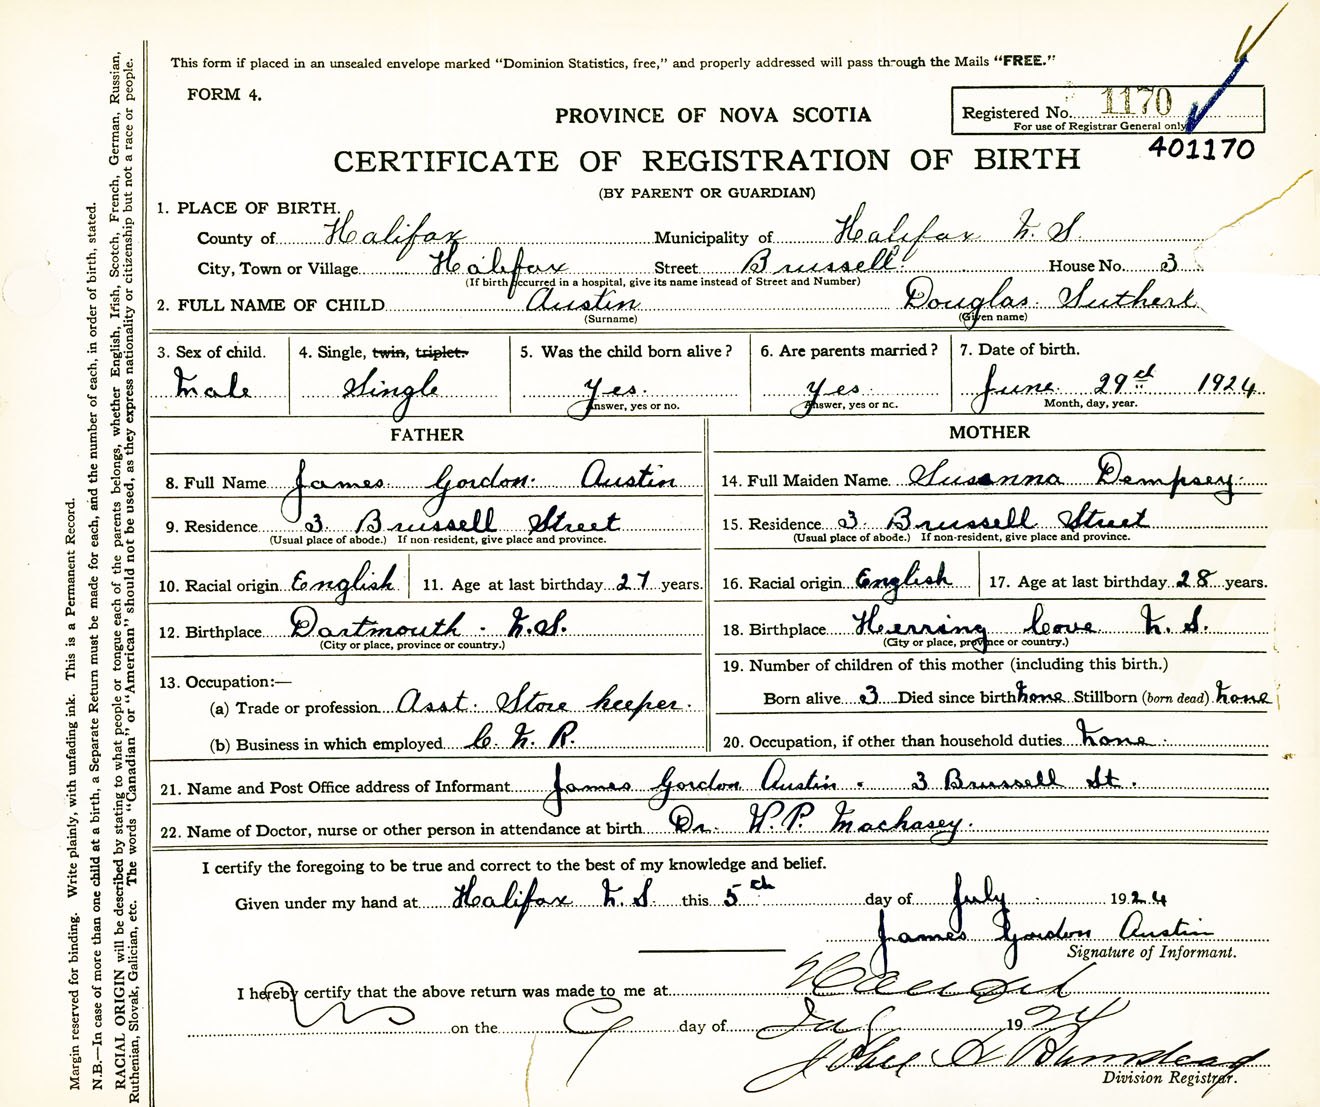 This form if placed in an unsealed envelope marked “Dominion Statistics, free,” and properly addressed will pass through the Mails “FREE.”
FORM 4.
PROVINCE OF NOVA SCOTIA
Registered No. 1170
For use of Registrar General only
401170
CERTIFICATE OF REGISTRATION OF BIRTH
(BY PARENT OR GUARDIAN)
1. PLACE OF BIRTH.
County of Halifax Municipality of Halifax N. S.
City, Town or Village Halifax Street Brussell House No. 3
(If birth occurred in a hospital, give its name instead of Street and Number)
2. FULL NAME OF CHILD Austin Douglas Sutherl
(Surname) (Given name)
3. Sex of child. 4. Single, twin, triplet. 5. Was the child born alive? 6. Are parents married? 7. Date of birth.
Male Single Yes. Yes. June 29th 1924
Answer, yes or no. Answer, yes or no. Month, day, year.
FATHER
8. Full Name James Gordon Austin
9. Residence 3 Brussell Street
(Usual place of abode.) If non-resident, give place and province.
10. Racial origin English 11. Age at last birthday 27 years.
12. Birthplace Dartmouth - N.S.
(City or place, province or country.)
13. Occupation:—
(a) Trade or profession Asst. Store keeper.
(b) Business in which employed C. N. R.
MOTHER
14. Full Maiden Name Susanna Dempsey
15. Residence 3 Brussell Street
(Usual place of abode.) If non-resident, give place and province.
16. Racial origin English 17. Age at last birthday 28 years.
18. Birthplace Herring Cove N. S.
(City or place, province or country.)
19. Number of children of this mother (including this birth.)
Born alive 3 Died since birth None Stillborn (born dead) None
20. Occupation, if other than household duties None
21. Name and Post Office address of Informant James Gordon Austin. 3 Brussell St.
22. Name of Doctor, nurse or other person in attendance at birth Dr. W. P. Mackasey.
I certify the foregoing to be true and correct to the best of my knowledge and belief.
Given under my hand at Halifax N. S. this 5th day of July 1924
James Gordon Austin
Signature of Informant.
I hereby certify that the above return was made to me at
on the 9 day of July 1924
Division Registrar.
Margin reserved for binding. Write plainly, with unfading ink. This is a Permanent Record.
N.B.—In case of more than one child at a birth, a Separate Return must be made for each, and the number of each, in order of birth, stated.
RACIAL ORIGIN will be described by stating to what people or tongue each of the parents belongs, whether English, Irish, Scotch, French, German, Russian,
Ruthenian, Slovak, Galician, etc. The words “Canadian” or “American” should not be used, as they express nationality or citizenship but not a race or people.